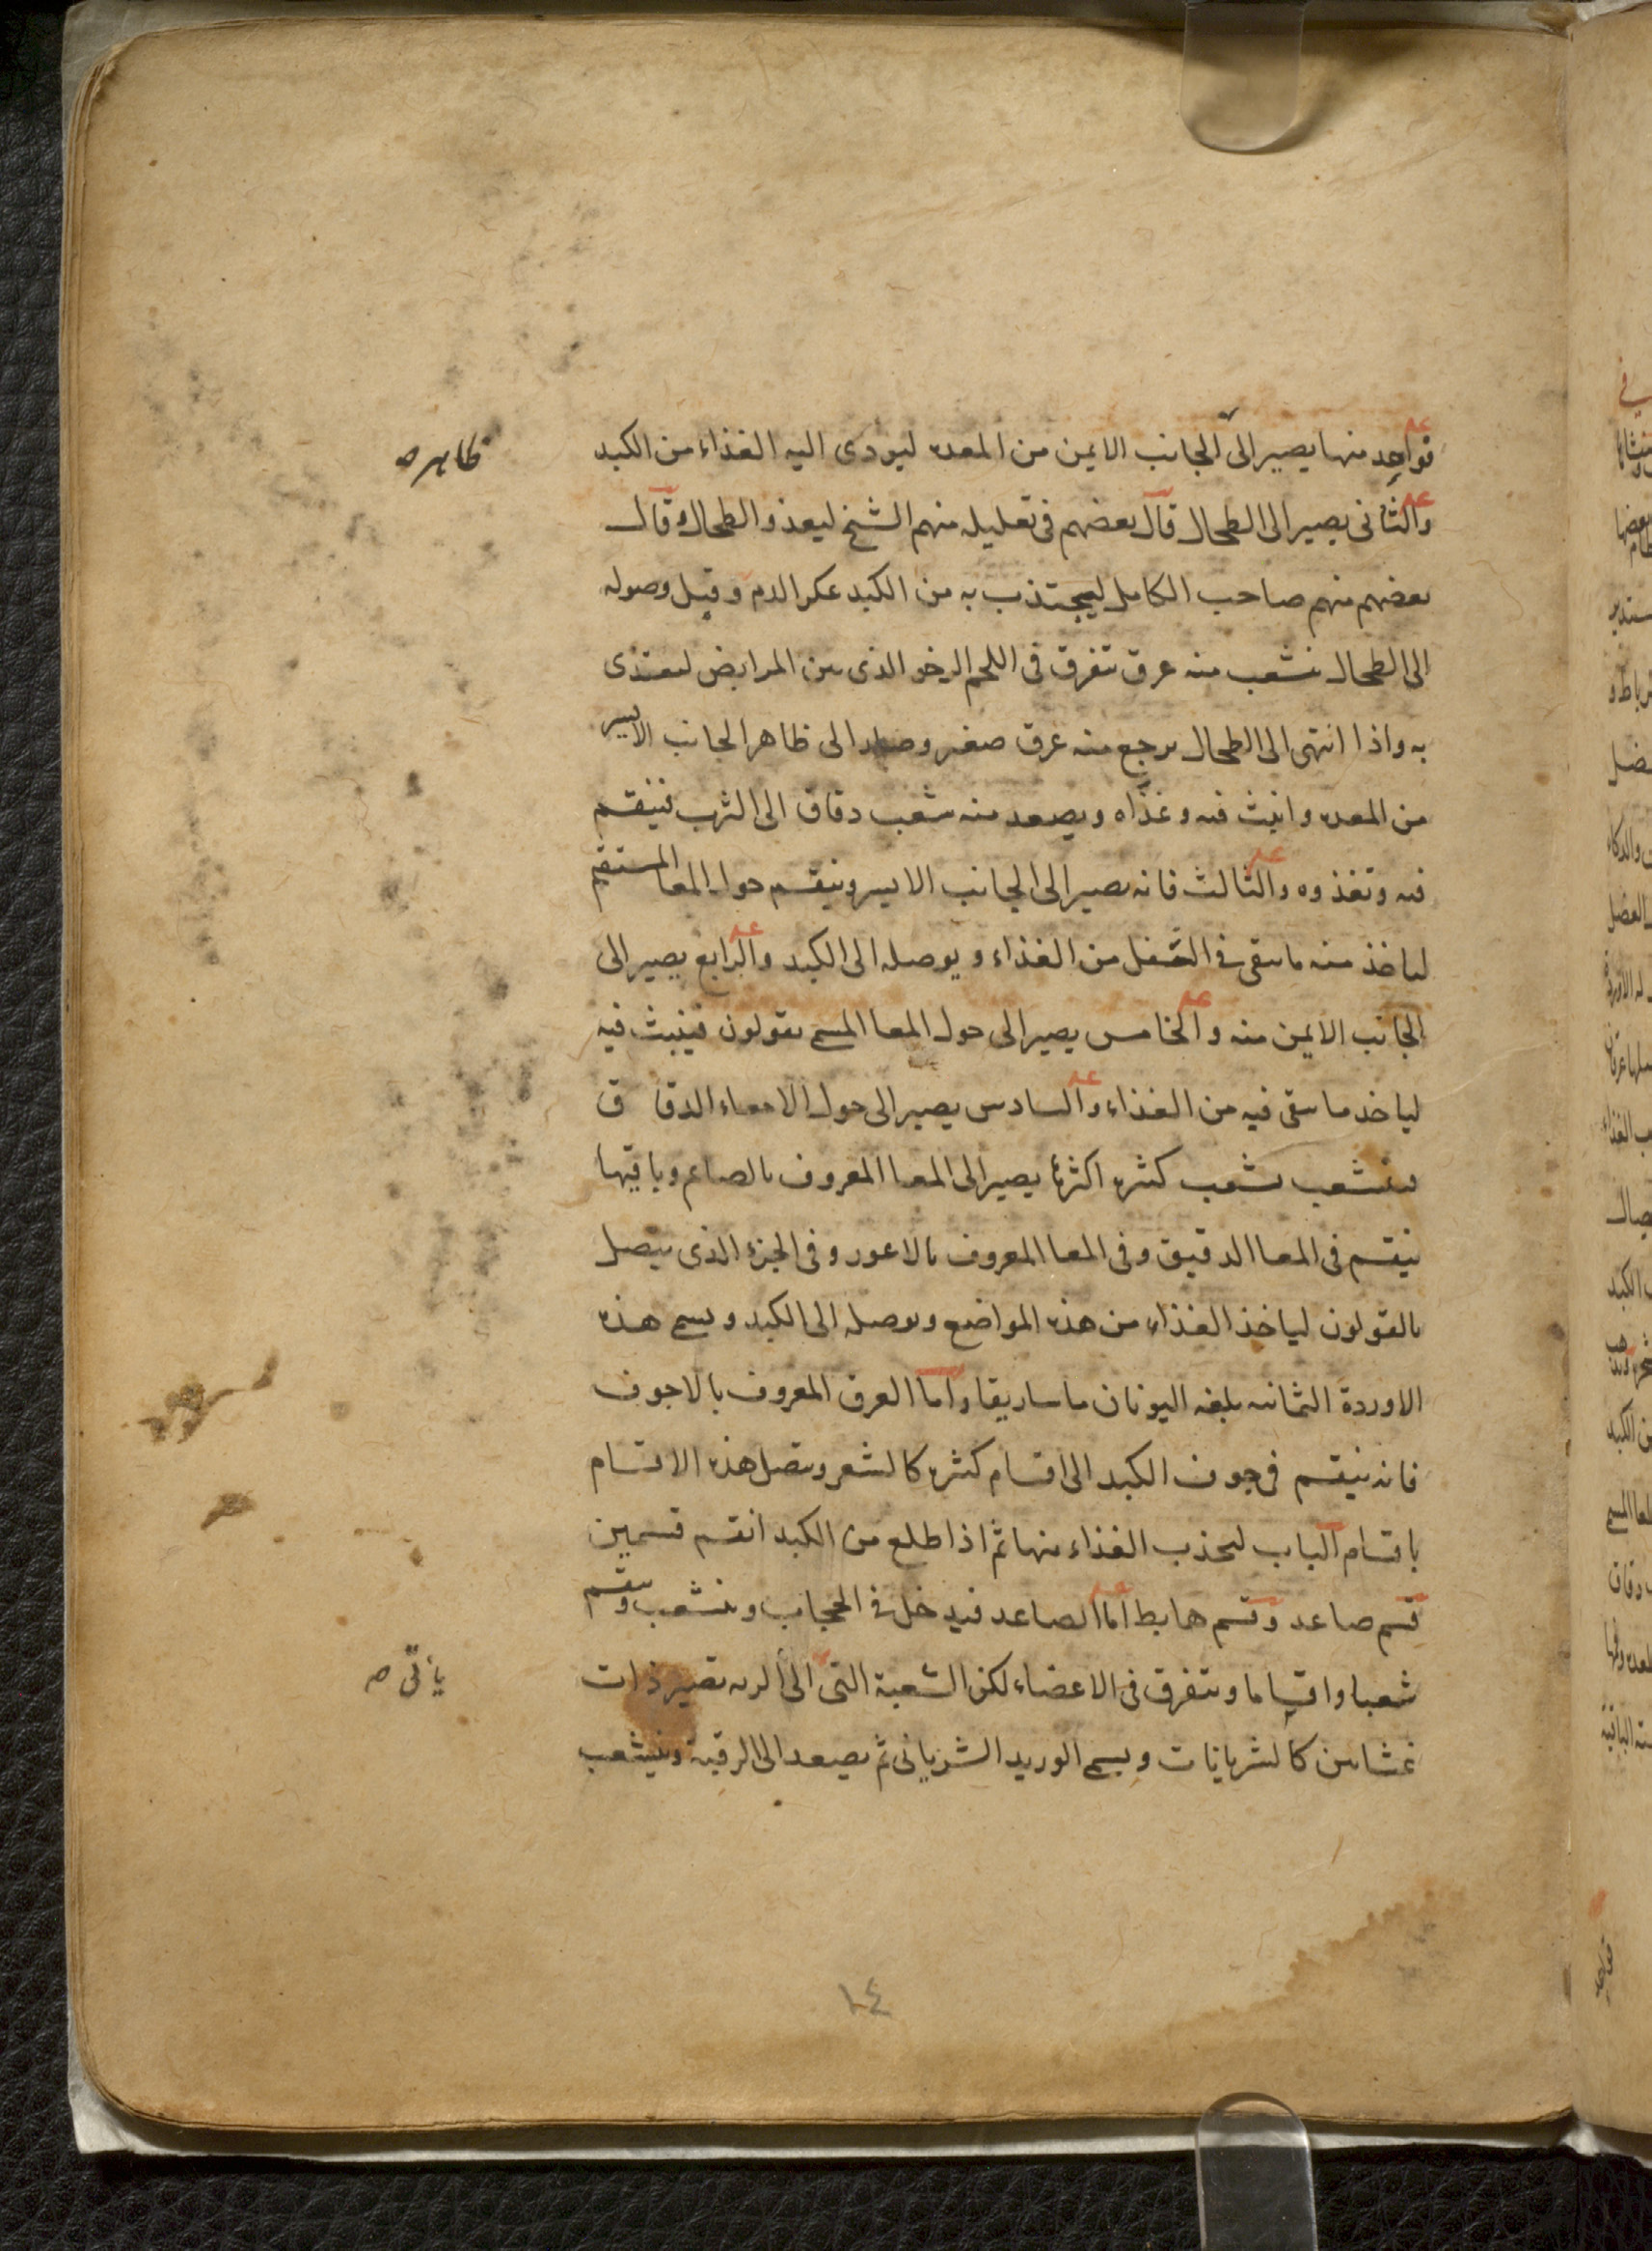 فواحد منها يصير الى الجانب الايمن من المعده ليودى اليه الغذاء من الكبد
ظاهر ه
والثانى يصير الى الطحال قال بعضهم فى تعليله منهم الشيخ ليغذو الطحال وقال
بعضهم منهم صاحب الكامل ليجتذب به من الكبد عكر الدم وقبل وصوله
الى الطحال نشعب منه عرق تتفرق فى اللحم الرخو الذى بين المرابض لتعتذى
به واذا انتهى الى الطحال يرجع منه عرق صغير وصار الى ظاهر الجانب الايسر
من المعده وانبث فيه وغذاه ويصعد منه شعب دقاق الى الثرب فينقسم
فيه وتغذوه والثالث فانه يصير الى الجانب الايسر وينقسم حول المعا المستقيم
لياخذ منه ما يبقى فى الثفل من الغذاء ويوصله الى الكبد والرابع يصير الى
الجانب الايمن منه والخامس يصير الى حول المعا المسمى بقولون فينبث فيه
لياخذ ما يبقى فيه من الغذاء والسادس يصير الى حول الامعاء الدقاق
فيتشعب بشعب كثيره اكثرها يصير الى المعا المعروف بالصايم وباقيها
ينقسم فى المعا الدقيق وفى المعا المعروف بالاعور وفى الجزء الذى يتصل
بالقولون لياخذ الغذاء من هذه المواضع ويوصله الى الكبد ويسمى هذه
الاوردة الثمانيه بلغه اليونان ماساريقا واما العرق المعروف بالاجوف
فانه ينقسم فى جوف الكبد الى اقسام كثيره كالشعر ويتصل هذه الاقسام
باقسام الباب ليجذب الغذاء منها ثم اذا طلع من الكبد انقسم قسمين
قسم صاعد وقسم هابط اما الصاعد فيدخل فى الحجاب ويتشعب وينقسم
شعبا واقساما ويتفرق فى الاعضاء لكن الشعبة التى الى الريه تصير ذات
ياتى ه
غشايين كالشريانات ويسمى الوريد الشريانى ثم يصعد الى الرقبة ويتشعب
١٤